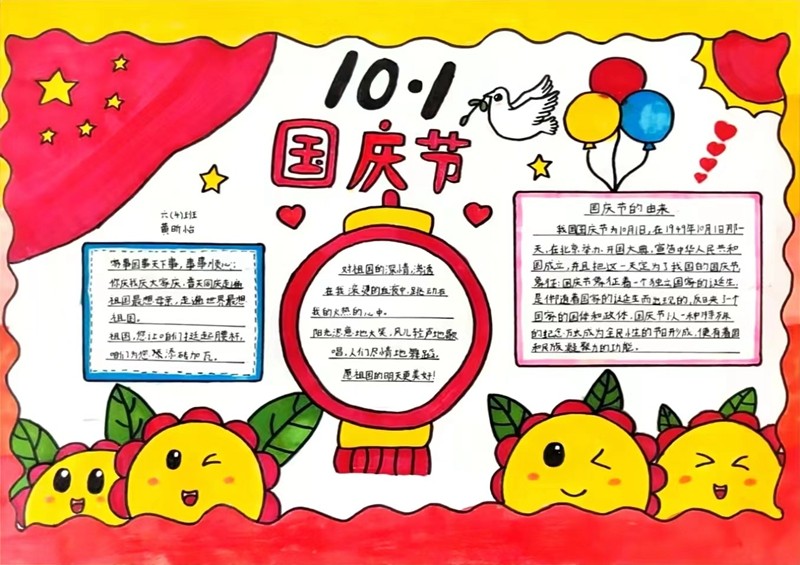 10·1
国庆节
六(4)班
黄昕怡
家事国事天下事，事事关心：
你庆我庆大家庆，普天同庆走遍
祖国最想母亲，走遍世界最想
祖国。
祖国，您让咱们挺起了腰杆，
咱们为您添砖加瓦。
对祖国的深情，渗透
在我滚烫的血液中，跳动在
我的火热的心中。
阳光恣意地大笑，风儿轻声地歌
唱，人们尽情地舞蹈。
愿祖国的明天更美好！
国庆节的由来
我国国庆节为10月1日，在1949年10月1日那一
天，在北京举办开国大典，宣告中华人民共和
国成立，并且把这一天定为了我国的国庆节
象征：国庆节象征着一个独立国家的诞生，
是伴随着国家的诞生而出现的，反映了个
国家的国体和政体，国庆节以一种特殊
的纪念方式成为全民性的节日形成，便有着国
和民族凝聚力的功能。